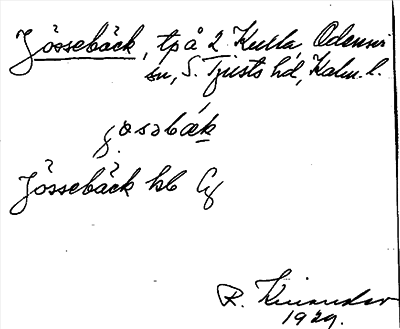 Jössebäck, tp å 2 Kulla, Odensvi
sn, S. Tjusts hd, Kalm. l.
jøsəbǽk
Jössebäck kb Cf
R. Kinander
1929.